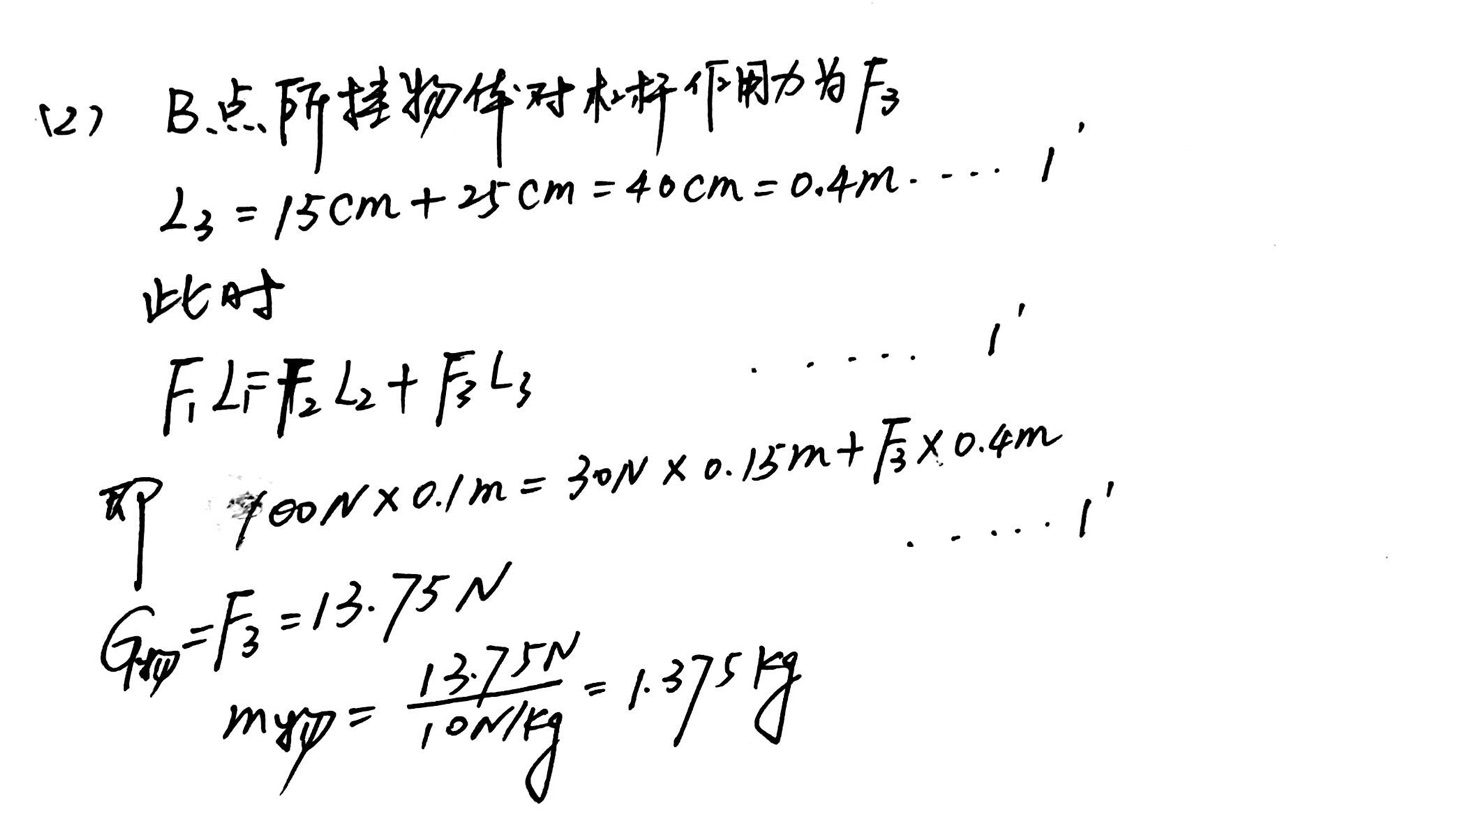 (2) B点所挂物体对木杆作用力为F₃
L₃ = 15cm + 25cm = 40cm = 0.4m ····· 1'
此时
F₁L₁=F₂L₂ + F₃L₃ ····· 1'
即 100N × 0.1m = 30N × 0.15m + F₃ × 0.4m
····· 1'
G物 = F₃ = 13.75N
m物 = 13.75N / 10N/kg = 1.375kg